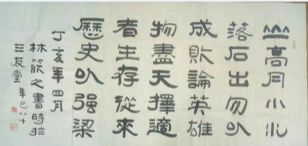 山高月小水
落石出勿以
成敗論英雄
物盡天擇適
者生存從來
歷史以强梁
丁亥年四月
林筱之書時於
三友堂年八十